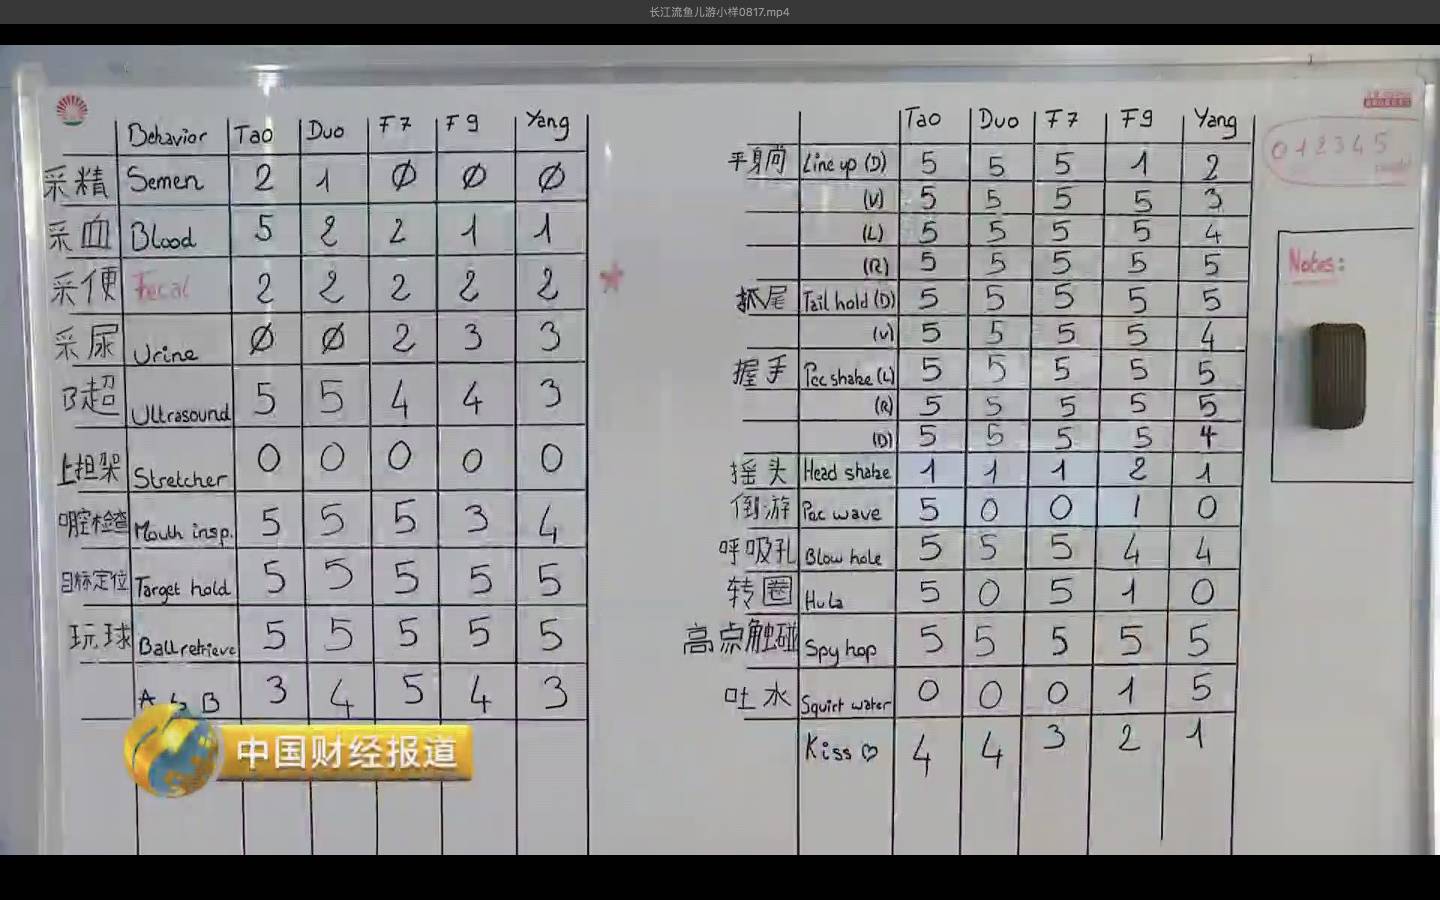 长江流鱼儿游小样0817.mp4
Behavior Tao Duo F7 F9 Yang
采精 Semen 2 1 Ø Ø Ø
采血 Blood 5 2 2 1 1
采便 Fecal 2 2 2 2 2
采尿 Urine Ø Ø 2 3 3
B超 Ultrasound 5 5 4 4 3
上担架 Stretcher 0 0 0 0 0
口腔检查 Mouth insp. 5 5 5 3 4
目标定位 Target hold 5 5 5 5 5
玩球 Ball retrieve 5 5 5 5 5
A B 3 4 5 4 3
中国财经报道
Tao Duo F7 F9 Yang
平身向 Line up (D) 5 5 5 1 2
(V) 5 5 5 5 3
(L) 5 5 5 5 4
(R) 5 5 5 5 5
抓尾 Tail hold (D) 5 5 5 5 5
(V) 5 5 5 5 4
握手 Pec shake (L) 5 5 5 5 5
(R) 5 5 5 5 5
(D) 5 5 5 5 4
摇头 Head shake 1 1 1 2 1
倒游 Pec wave 5 0 0 1 0
呼吸孔 Blow hole 5 5 5 4 4
转圈 Hula 5 0 5 1 0
高点触碰 Spy hop 5 5 5 5 5
吐水 Squirt water 0 0 0 1 5
Kiss ♡ 4 4 3 2 1
0 1 2 3 4 5
Notes: